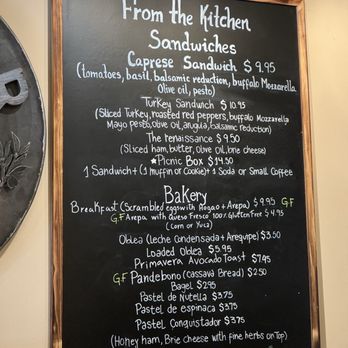 From the Kitchen
Sandwiches
Caprese Sandwich $9.95
(tomatoes, basil, balsamic reduction, buffalo Mozzarella
Olive oil, pesto)
Turkey Sandwich $10.95
(Sliced Turkey, roasted red peppers, buffalo Mozzarella
Mayo pesto, olive oil, arugula, balsamic reduction)
The renaissance $9.50
(Sliced ham, butter, olive oil, brie cheese)
★Picnic Box $14.50
1 Sandwich + (1 muffin or Cookie) + 1 Soda or Small Coffee
Bakery
Breakfast (Scrambled eggs with Hogao + Arepa) $9.95 GF
GF Arepa with Queso Fresco 100% Gluten Free $4.95
(Corn or Yuca)
Oblea (Leche Condensada + Arequipe) $3.50
Loaded Oblea $5.95
Primavera Avocado Toast $7.95
GF Pandebono (cassava Bread) $2.50
Bagel $2.95
Pastel de Nutella $3.75
Pastel de espinaca $3.75
Pastel Conquistador $3.75
(Honey ham, Brie cheese with fine herbs on Top)
R